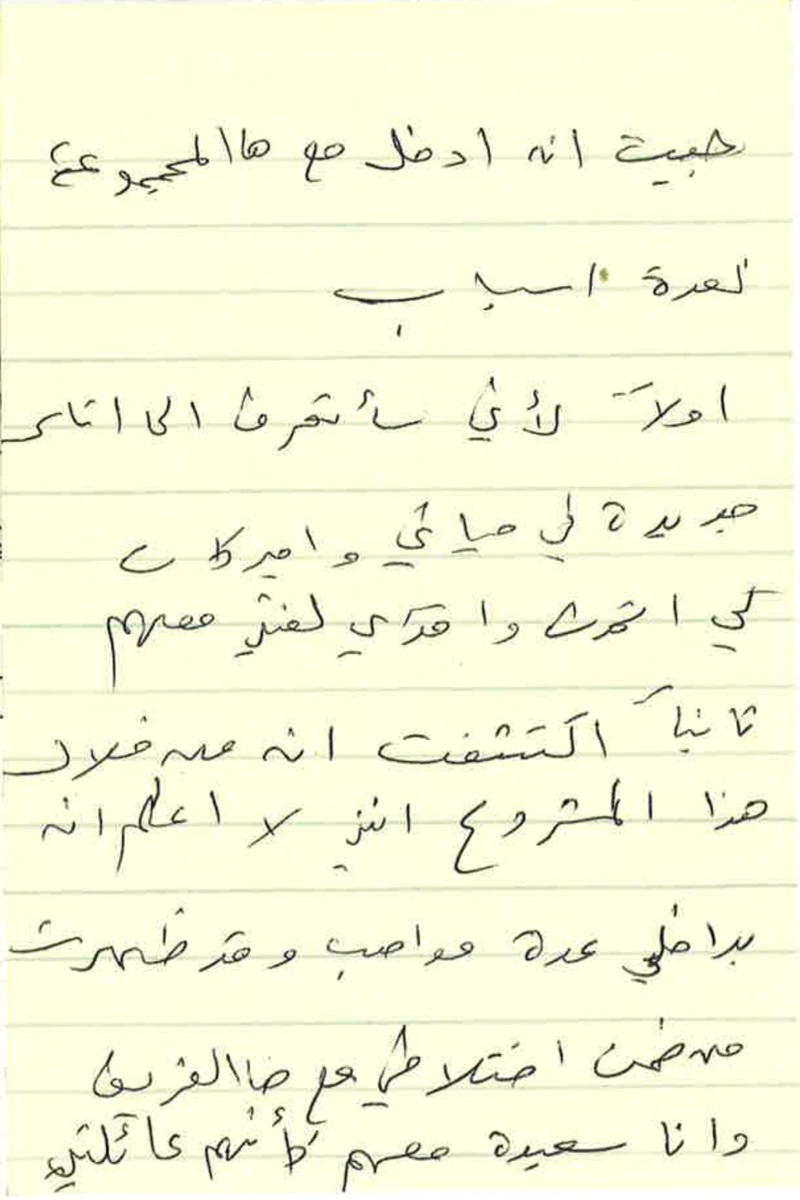 حبيت انه ادخل مع هاالمجموعة
لعدة اسباب
اولاً لأني سأتعرف الى اناس
جديدة في حياتي واميركان
كي اتمرن واقوي لغتي معهم
ثانياً اكتشفت انه من خلال
هذا المشروع انني لا اعلم انه
بداخلي عدة مواهب وقد ظهرت
من ضمن اختلاطي مع هاالفريق
وانا سعيدة معهم كأنهم عائلتي